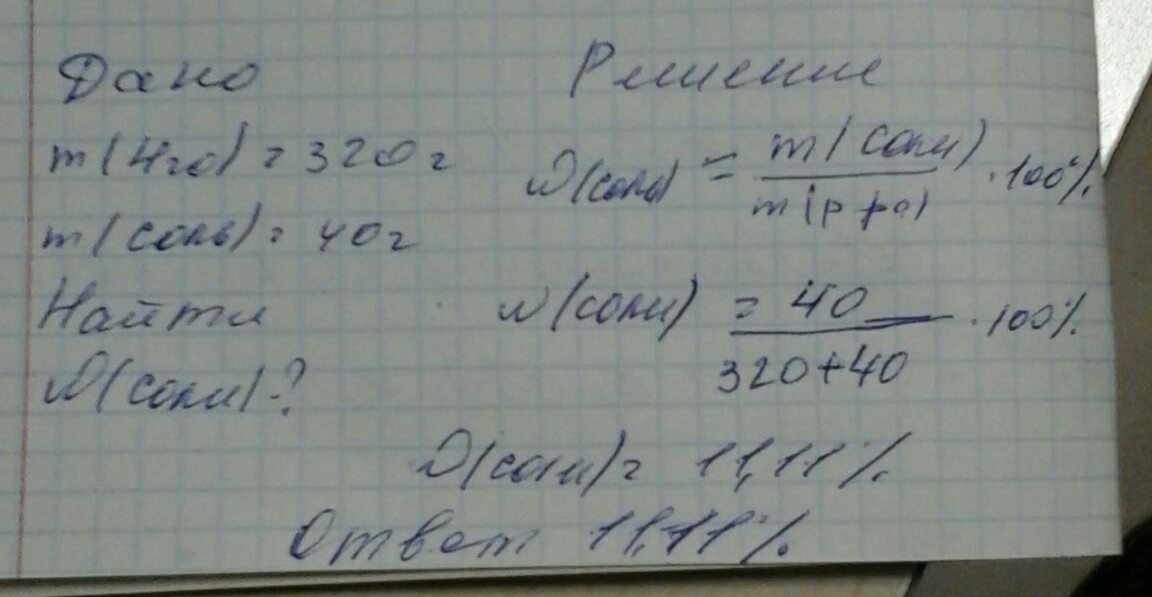 Дано
m(H2O) = 320 г
m(соль) = 40 г
Найти
ω(соли) - ?
Решение
ω(соль) = m(соли) / m(р-ра) · 100%
ω(соли) = 40 / 320+40 · 100%
ω(соли) = 11,11%
Ответ 11,11%